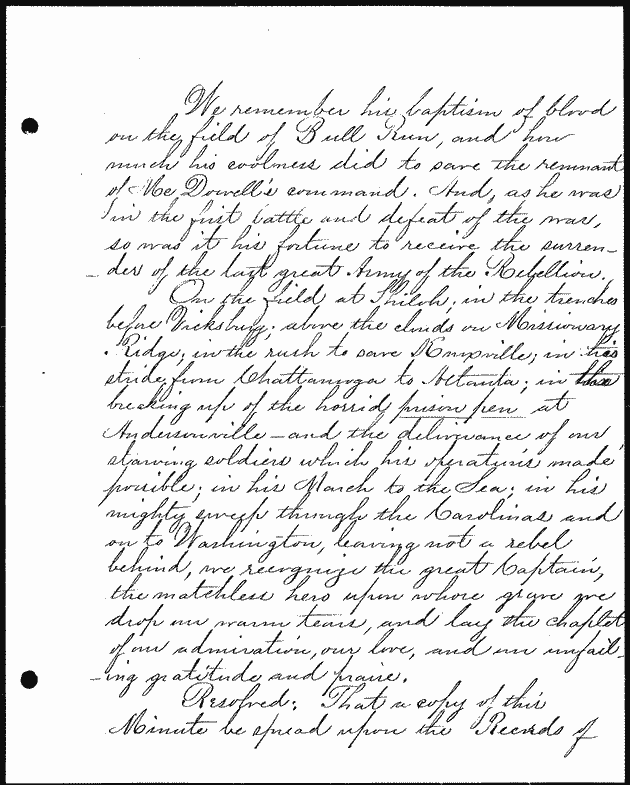 We remember his baptism of blood
on the field of Bull Run, and how
much his coolness did to save the remnant
of McDowell's command. And, as he was
in the first battle and defeat of the war,
so was it his fortune to receive the surren-
der of the last great Army of the Rebellion.
On the field at Shiloh; in the trenches
before Vicksburg; above the clouds on Missionary
Ridge; in the rush to save Knoxville; in his
stride from Chattanooga to Atlanta; in
breaking up of the horrid prison pen at
Andersonville – and the deliverance of our
starving soldiers which his operations made
possible; in his March to the Sea; in his
mighty sweep through the Carolinas and
on to Washington, leaving not a rebel
behind, we recognize the great Captain,
the matchless hero upon whose grave we
drop our warm tears, and lay the chaplet
of our admiration, our love, and our unfail-
ing gratitude and praise.
Resolved; That a copy of this
Minute be spread upon the Records of